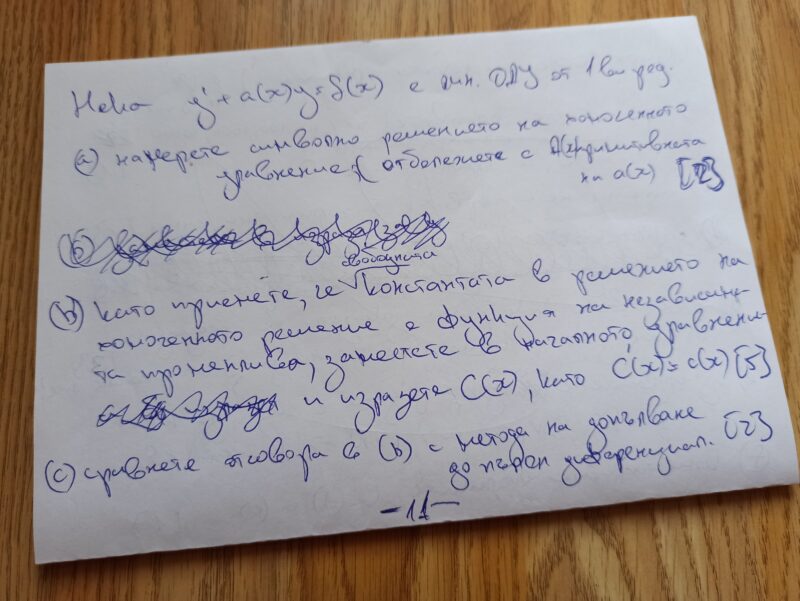 Нека y' + a(x)y = f(x) е лин. ОДУ от 1ви ред.
(a) намерете символно решението на хомогенното
уравнение (отбележете с A(x) примитивната
на a(x) [2]
(б)
свободната
(b) като приемете, че константата в решението на
хомогенното решение е функция на независима-
та променлива, заместете в началното уравнени-
и изразете C(x), като C'(x) = c(x) [5]
(c) сравнете отговора в (b) с метода на допълване
до пълен диференциал. [2]
- 11 -